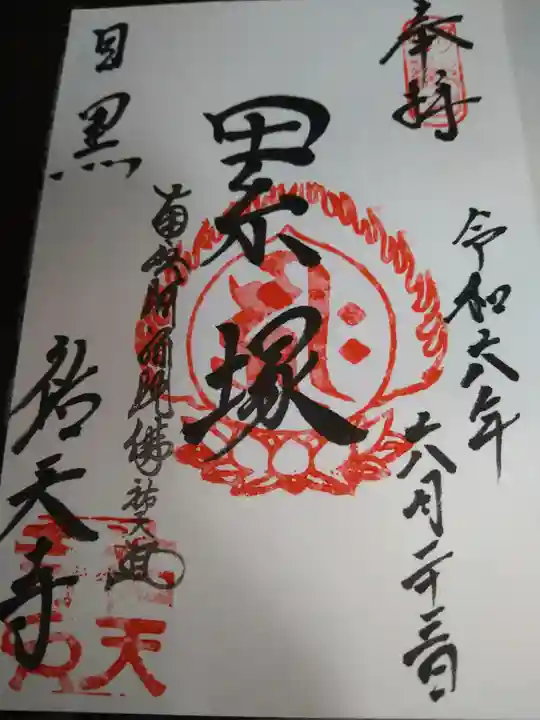 奉拝
令和六年
六月二十三日
累塚
南無阿弥陀佛
目黒
祐天寺